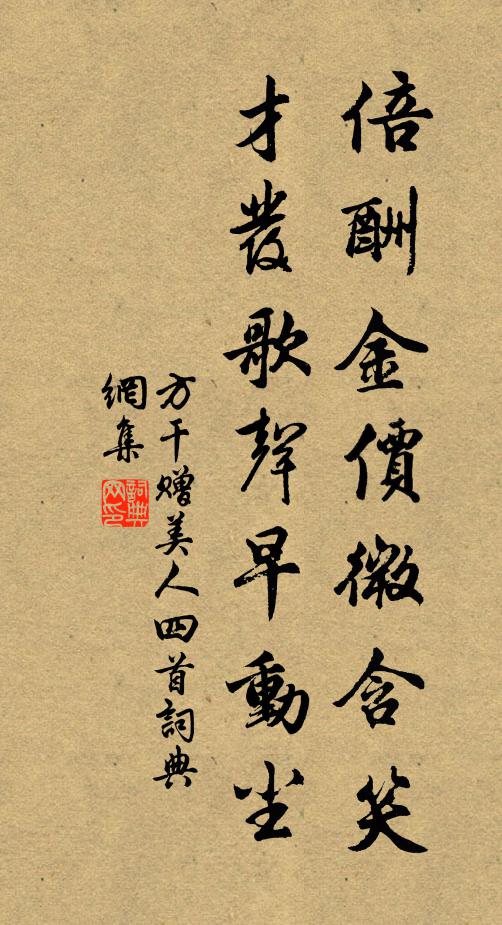 倍酬金價微含笑
才發歌聲早動塵
方干赠美人四首詞典
網集
詞典
网印